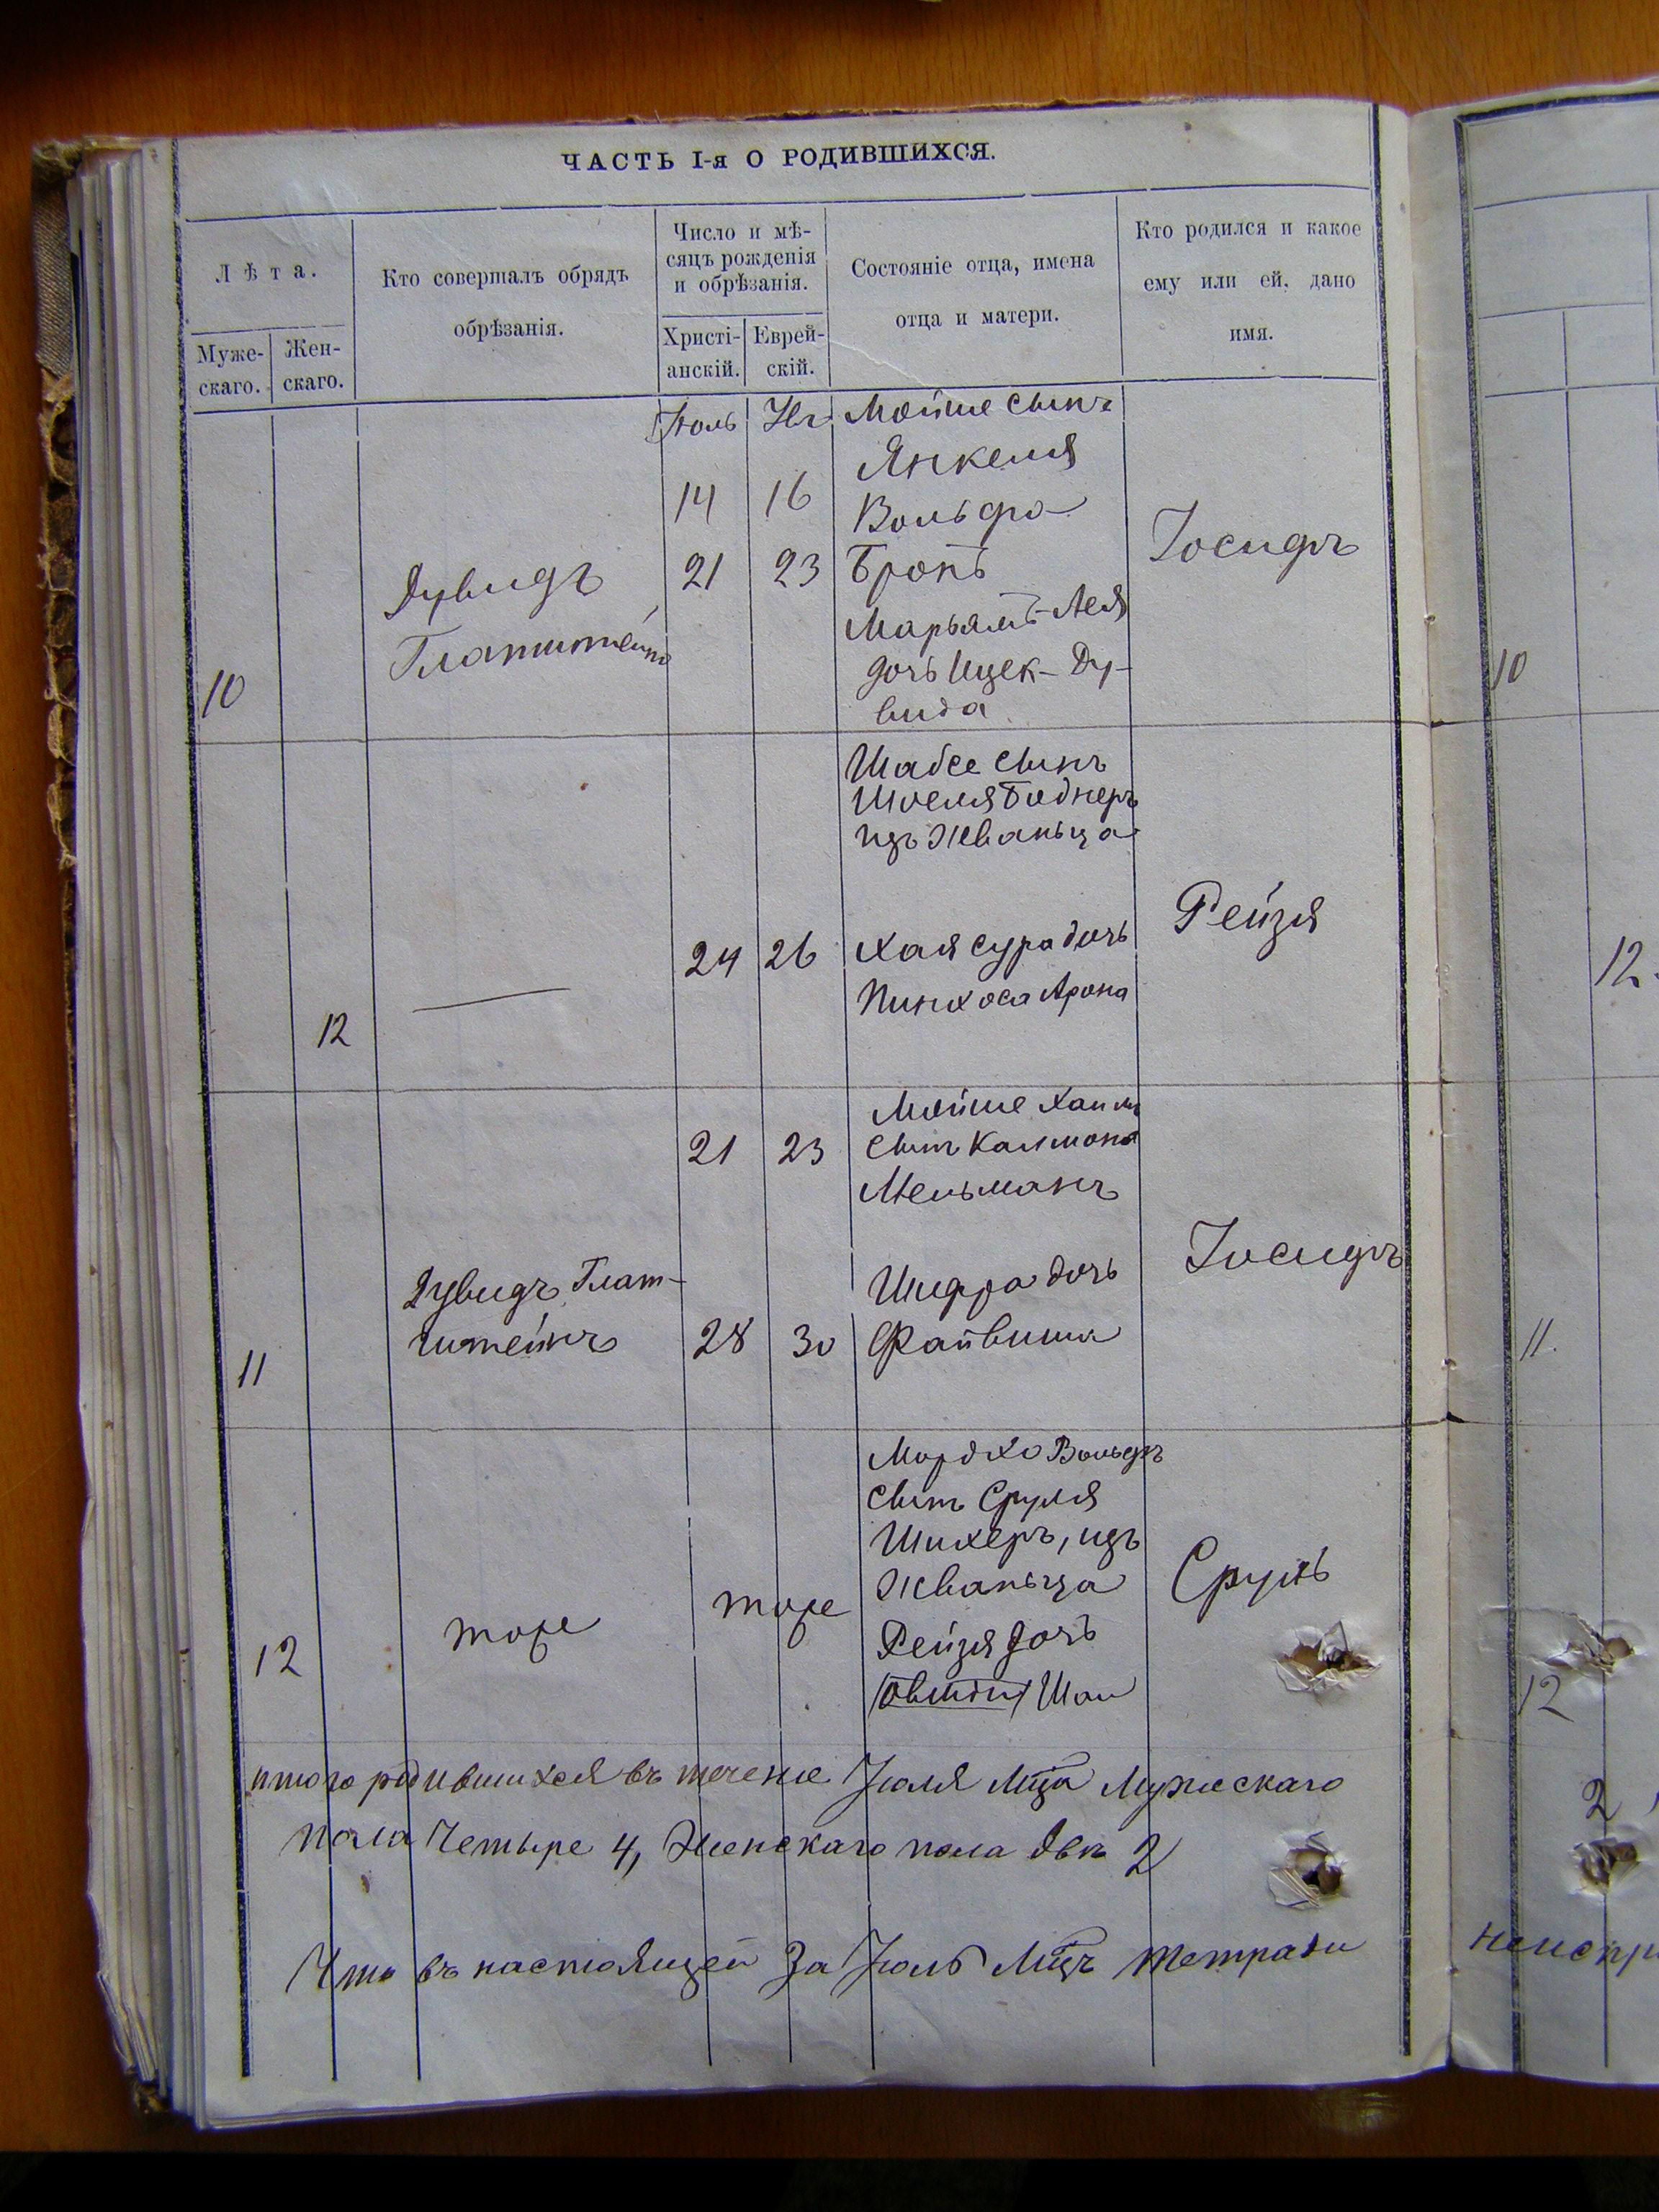 ЧАСТЬ I-я О РОДИВШИХСЯ.
Лѣта.
Муже-
скаго.
Жен-
скаго.
Кто совершалъ обрядъ
обрѣзанія.
Число и мѣ-
сяцъ рожденія
и обрѣзанія.
Христі-
анскій.
Еврей-
скій.
Состояніе отца, имена
отца и матери.
Кто родился и какое
ему или ей, дано
имя.
10
Дувидъ
Глатштейнъ
Іюль
14
21
16
23
Мойше сынъ
Янкеля
Вольфа
Бронъ
Марьямъ-Лея
дочь Ицек-Ду-
вида
Іосифъ
10
12
24
26
Шабсе сынъ
Шоеля Боднеръ
изъ Жванъца
Хая сура дочь
Пинхоса Арона
Рейзя
12
11
Дувидъ Глат-
штейнъ
21
28
23
30
Мойше Хаимъ
сынъ Калмона
Мельманъ
Шифра дочь
Файвиша
Іосифъ
11
12
тоже
тоже
Мордко Вольфъ
сынъ Сруля
Шихеръ, изъ
Жванъца
Рейзя дочь
Шаи
Сруль
12
итого родившихся въ течение Іюля Мца Мужескаго
пола Четыре 4, Женскаго пола две 2
2
Что въ настоящей За Іюль Мцъ тетради